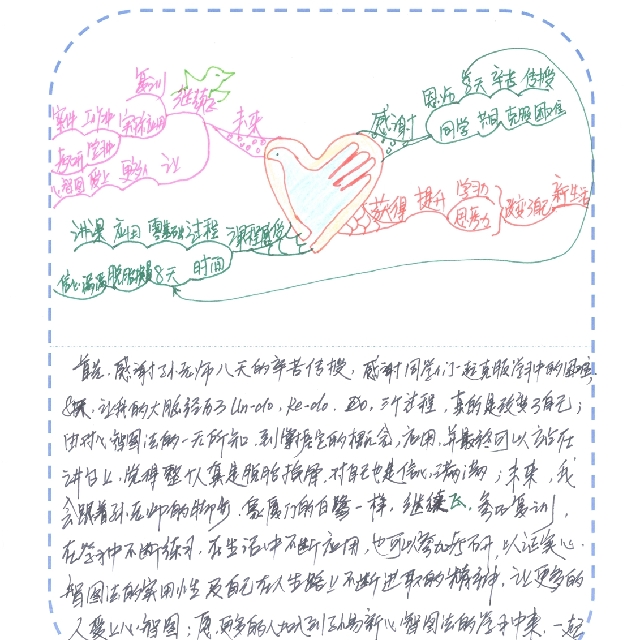 复训
继续飞
未来
案件 工作中 实际应用
学习
心智图 爱上 更多人 让
感谢
恩师 8天 辛苦 传授
同学 共同 克服困难
获得 提升 学习力
思考力
改变了自己 新生活
讲课 应用 零基础 过程 课程感受
信心满满 脱胎换骨 8天 时间
首先,感谢孙老师八天的辛苦传授,感谢同学们一起克服学习中的困难,
8天,让我的大脑经历了Un-do,Re-do,Do,三个过程,真的是改变了自己;
由对心智图法的一无所知,到掌握它的概念、应用,并最终可以站在
讲台上,觉得整个人真是脱胎换骨,对自己也是信心满满;未来,我
会跟着孙老师的脚步,像展翅的白鹭一样,继续飞,参与复训,
在学习中不断练习,在生活中不断应用,也可以参加,以证实心
智图法的实用性及自己在人生路上不断进取的精神,让更多的
人爱上心智图;愿更多的人加入到孙易新心智图法的学习中来,一起